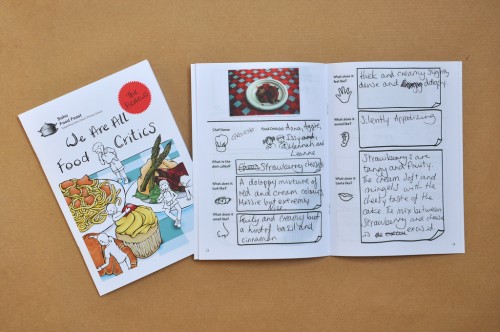 Soho
Food Feast
The Reviews
We Are All
Food Critics
Chef Name:
Food Critic(s):
Anna, Aggie,
Issy and
Leanne
What is the
dish called?
Strawberry cheese
What does it
look like?
A sloppy mixture of
red and cream colours
Massive but extremely
What does it
smell like?
Fruity and creamy but
a hint of basil and
cinnamon
What does it
feel like?
thick and creamy slightly
dense and
What does it
sound like?
Silently Appetizing
What does it
taste like?
Strawberrys are
tangy and fruity.
The cream soft and
mingels with the
cheesy taste of the
cake. The mix between
Strawberry and cheese
is